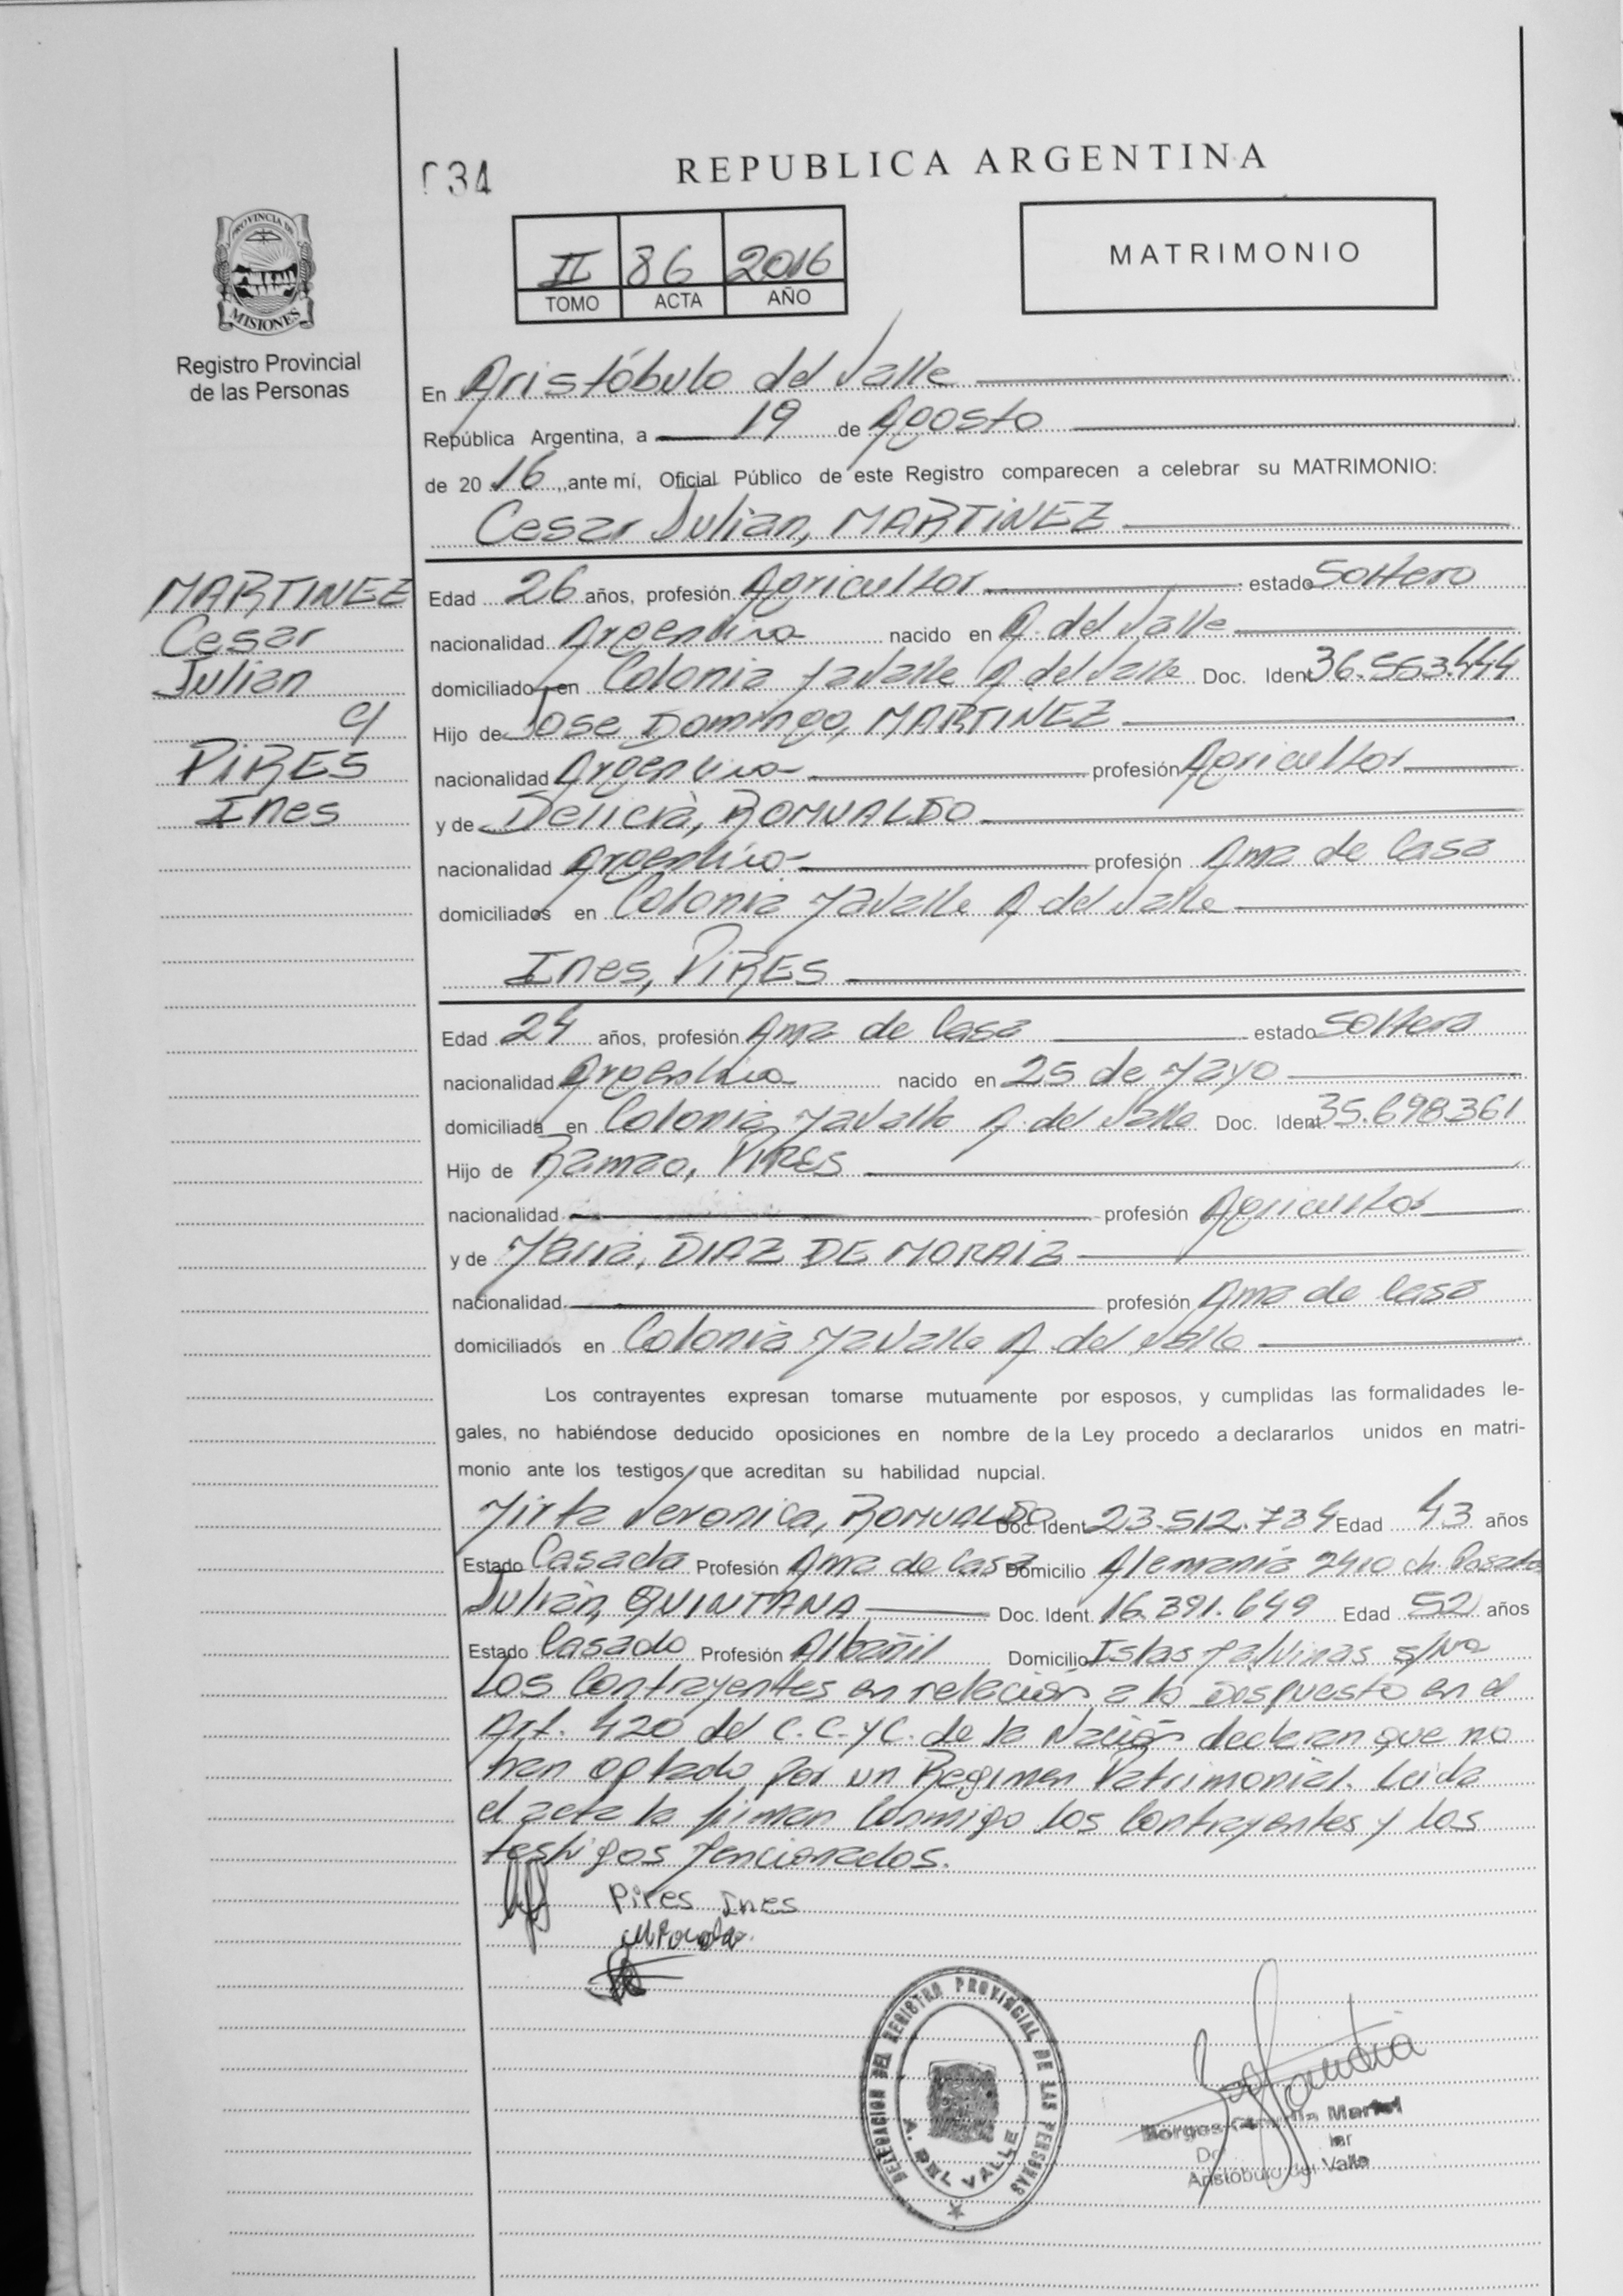 034
REPUBLICA ARGENTINA
PROVINCIA DE
MISIONES
Registro Provincial
de las Personas
II 86 2016
TOMO ACTA AÑO
MATRIMONIO
En Aristóbulo del Valle
República Argentina, a 19 de Agosto
de 20 16, ante mí, Oficial Público de este Registro comparecen a celebrar su MATRIMONIO:
Cesar Julian, MARTINEZ
MARTINEZ
Cesar
Julian
c/
PIRES
Ines
Edad 26 años, profesión Agricultor estado Soltero
nacionalidad Argentina nacido en A. del Valle
domiciliado en Colonia A. del Valle Doc. Ident 36.553.444
Hijo de Jose Domingo, MARTINEZ
nacionalidad Argentina profesión Agricultor
y de Delicia, ROMUALDO
nacionalidad Argentina profesión Ama de Casa
domiciliados en Colonia A del Valle
Ines, PIRES
Edad 24 años, profesión Ama de Casa estado Soltera
nacionalidad Argentina nacido en 25 de Mayo
domiciliada en Colonia A. del Valle Doc. Ident 35.698.361
Hijo de Ramao, PIRES
nacionalidad profesión Agricultor
y de Maria, DIAZ DE MORAIZ
nacionalidad profesión Ama de Casa
domiciliados en Colonia A. del Valle
Los contrayentes expresan tomarse mutuamente por esposos, y cumplidas las formalidades le-
gales, no habiéndose deducido oposiciones en nombre de la Ley procedo a declararlos unidos en matri-
monio ante los testigos que acreditan su habilidad nupcial.
Mirta Veronica, ROMUALDO Doc. Ident 23.512.734 Edad 43 años
Estado Casada Profesión Ama de Casa Domicilio Alemania 2410 ch. Posadas
Julián, QUINTANA Doc. Ident. 16.391.649 Edad 52 años
Estado Casado Profesión Albañil Domicilio Islas Malvinas s/Nº
Los Contrayentes en relación a lo Dispuesto en el
Art. 420 del C.C.yC. de la Nación declaran que no
han optado por un Regimen Patrimonial. Leida
el acta la firman Conmigo los Contrayentes y los
testigos Mencionados.
Pires Ines
DELEGACION DEL REGISTRO PROVINCIAL DE LAS PERSONAS
A. DEL VALLE
Borges Claudia
Aristóbulo del Valle